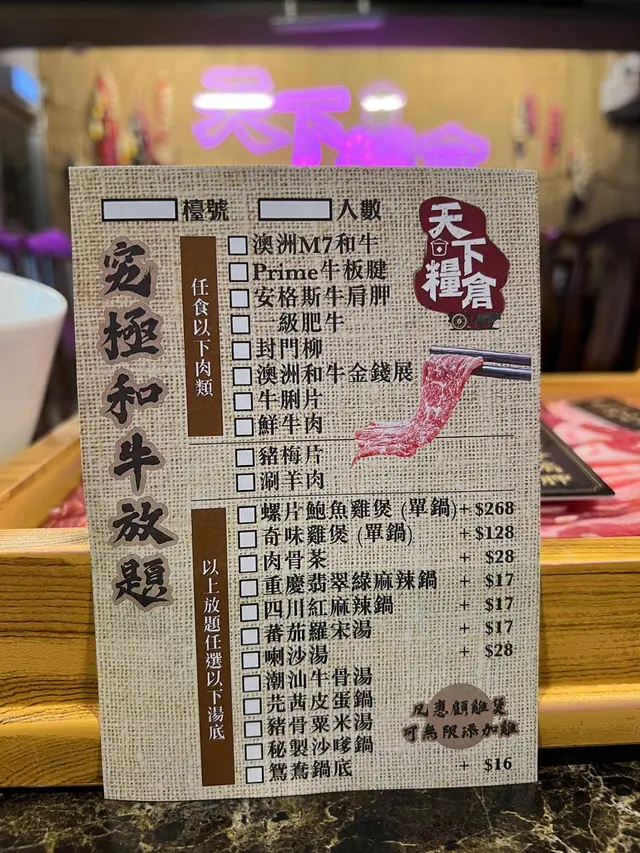 天下糧倉
檯號 人數
天下糧倉
究極和牛放題
任食以下肉類
澳洲M7和牛
Prime牛板腱
安格斯牛肩胛
一級肥牛
封門柳
澳洲和牛金錢展
牛脷片
鮮牛肉
豬梅片
涮羊肉
以上放題任選以下湯底
螺片鮑魚雞煲 (單鍋)+ $268
奇味雞煲 (單鍋) + $128
肉骨茶 + $28
重慶翡翠綠麻辣鍋 + $17
四川紅麻辣鍋 + $17
蕃茄羅宋湯 + $17
喇沙湯 + $28
潮汕牛骨湯
芫茜皮蛋鍋
豬骨粟米湯
秘製沙嗲鍋
鴛鴦鍋底 + $16
凡惠顧雞煲
可無限添加雞